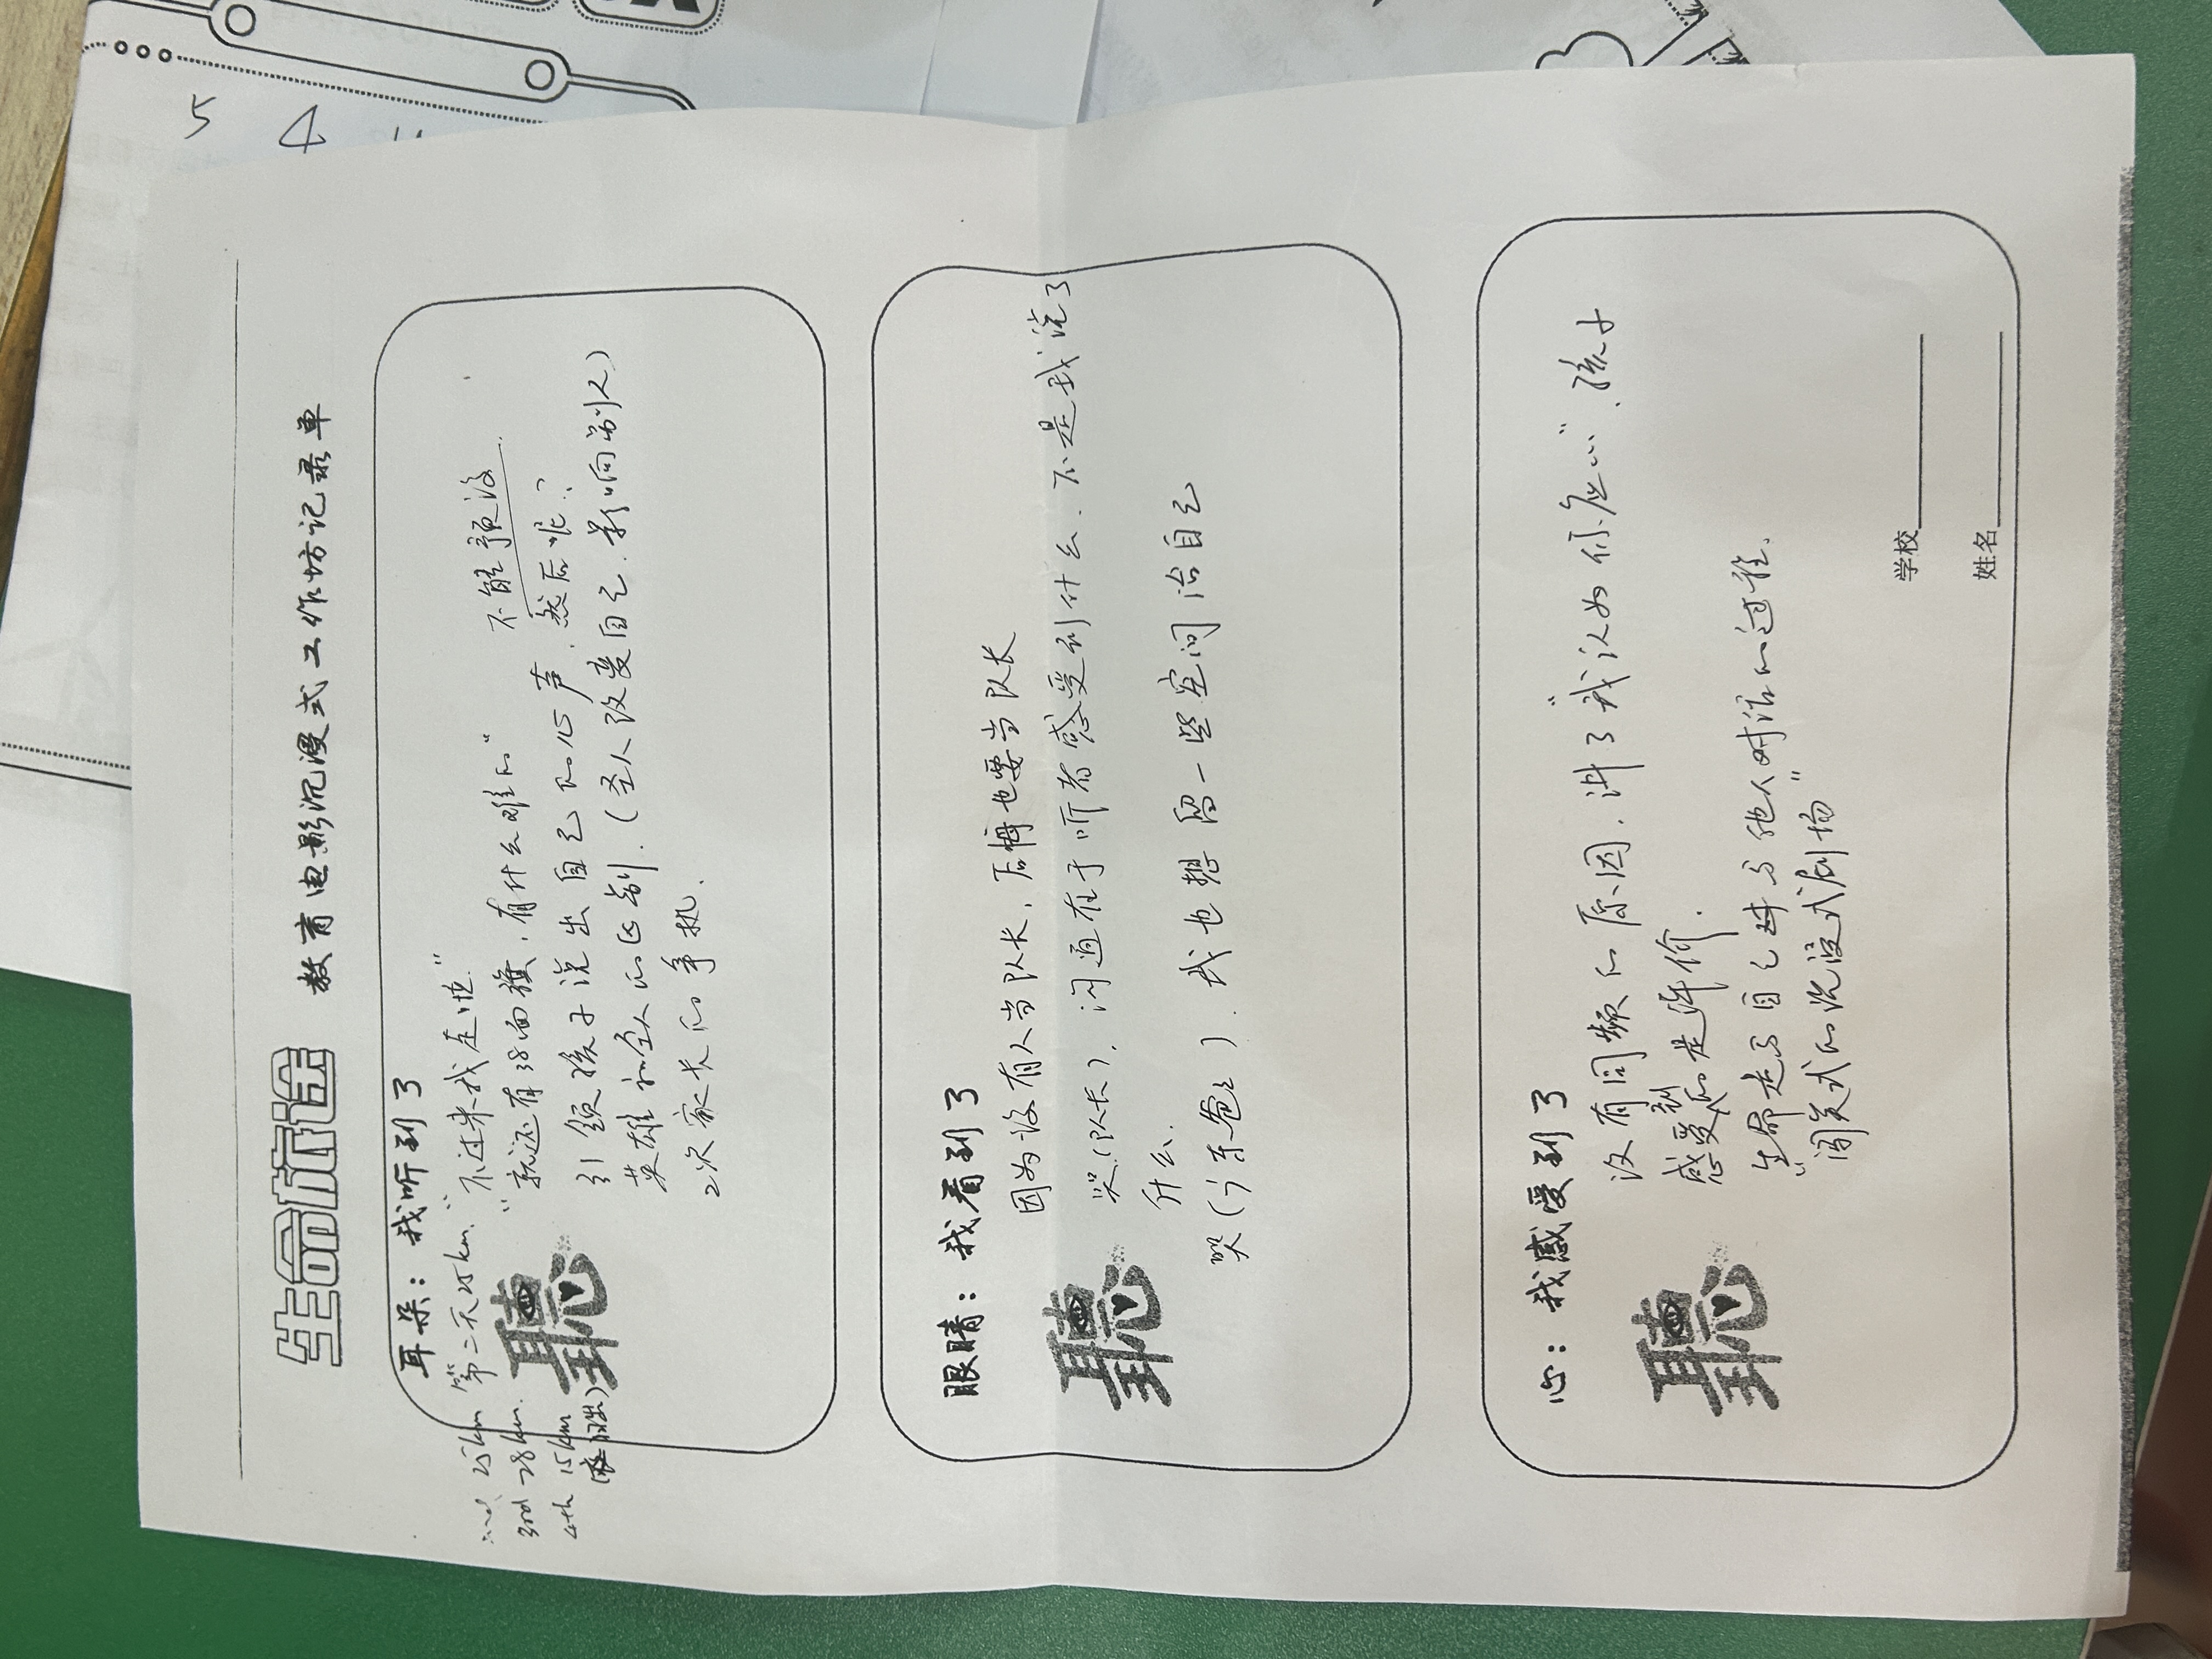 5 4
生命旅途 教育电影沉浸式工作坊记录单
耳朵：我听到了
25km 第二天25km. "不过来我走啦"
3rd 28km. "就还有38面旗，有什么难的" 不能预设
4th 15km 引领孩子说出自己的心声. 然后呢？
英雄和圣人的区别.（圣人改变自己.影响别人）
2次家长的手机.
聽
眼睛：我看到了
因为没有人当队长，后悔也要当队长
哭（队长），沟通在于听者感受到什么、不是我说了
什么.
哭（爸爸）. 我也想留一些空间治自己
聽
心：我感受到了
没有同频的原因，讲了"我认为你应…"、孩子
感受到的是评价.
生命是与自己与他人对话的过程.
"闯关式的沉浸式剧场"
聽
学校
姓名